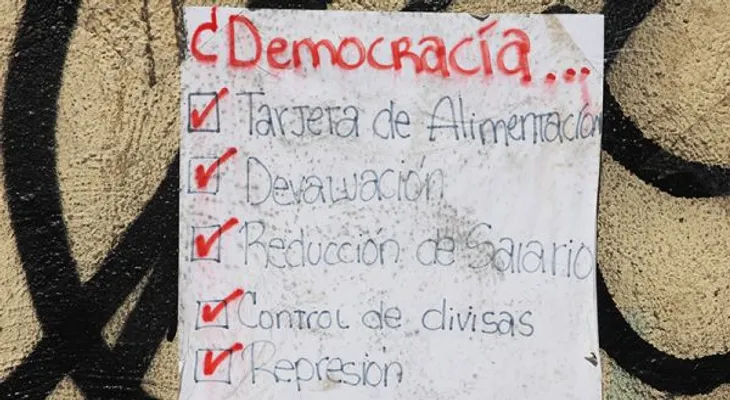 ¿Democracía...
Tarjeta de Alimentación
Devaluación
Reducción de Salario
Control de divisas
Represión